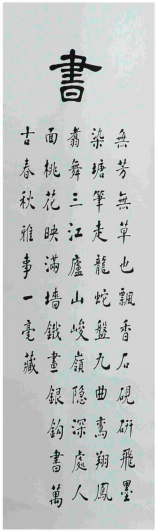 書
無芳無草也飄香石硯研飛墨
染塘筆走龍蛇盤九曲鸞翔鳳
翥舞三江廬山峻嶺隱深處人
面桃花映滿墻鐵畫銀鈎書萬
古春秋雅事一毫藏